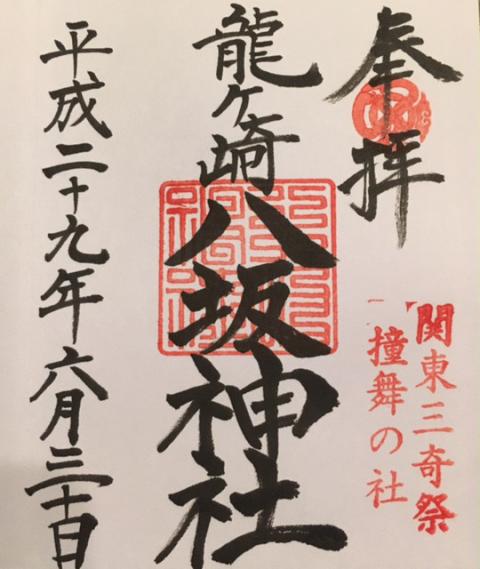 奉拝
関東三奇祭
撞舞の社
龍ヶ崎八坂神社
平成二十九年六月三十日